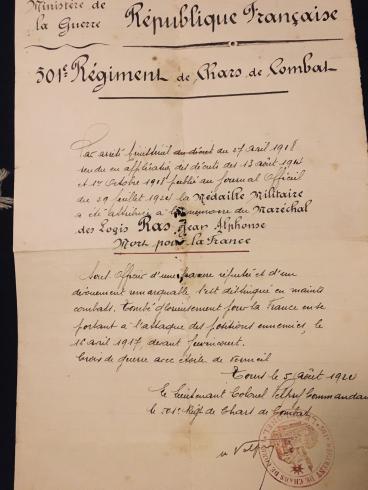 Ministère de
la Guerre
République Française
501e Régiment de Chars de Combat
Par arrêté ministériel du décret du 27 avril 1918
rendu en application des décrets des 13 août 1914
et 17 Octobre 1918 publié au Journal Officiel
du 29 juillet 1920 la Médaille Militaire
a été attribuée à la mémoire du Maréchal
des Logis Ras Jean Alphonse
Mort pour la France
Sous Officier d'une et d'un
dévouement remarquable s'est distingué en maints
combats. Tombé glorieusement pour la France en se
portant à l'attaque des positions ennemies, le
16 avril 1917, devant Juvincourt.
Croix de guerre avec étoile de Vermeil
Tours le 5 août 1920
Le Lieutenant Colonel Commandant
le 501e Régt de Chars de Combat